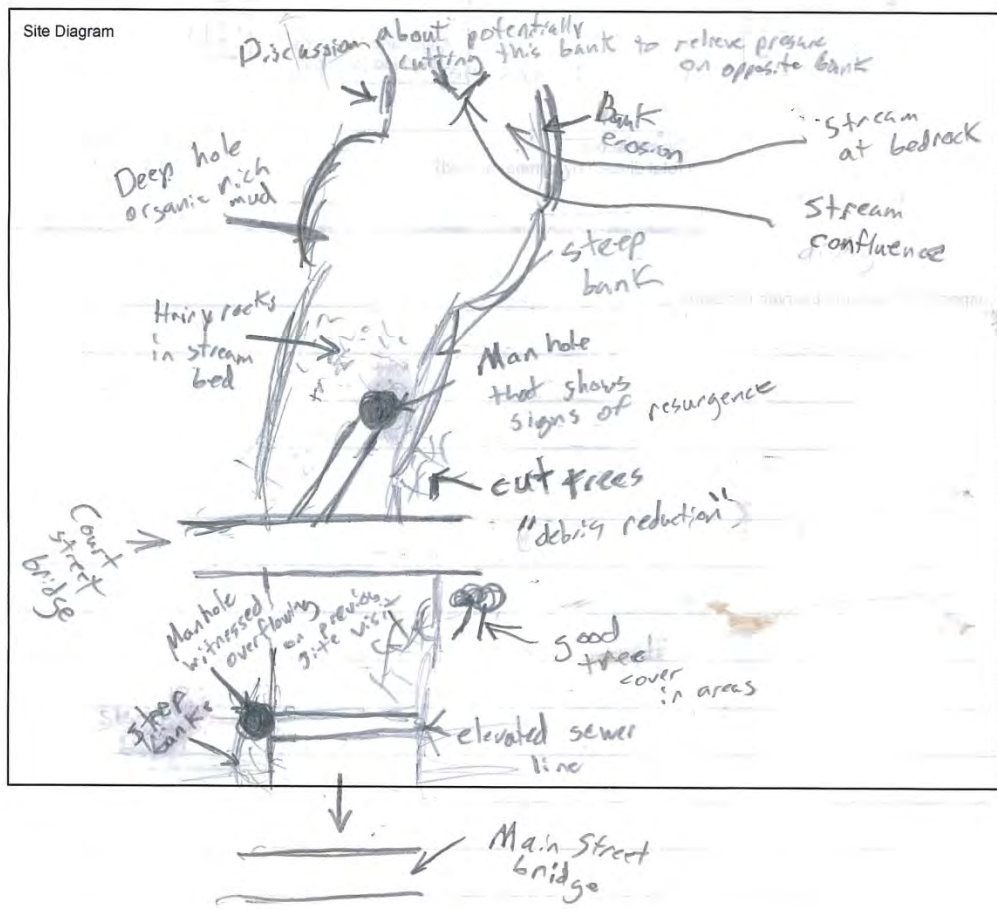 Site Diagram
Discussion about potentially
cutting this bank to relieve pressure
on opposite bank
Bank
erosion
stream
at bedrock
Deep hole
organic rich
mud
Stream
confluence
steep
bank
Hairy rocks
in stream
bed
Manhole
that shows
signs of resurgence
cut trees
"debris reduction"
Court
street
bridge
Manhole
witnessed
overflowing
on previous
site visit
good
tree
cover
in areas
steep
banks
elevated sewer
line
Main Street
bridge